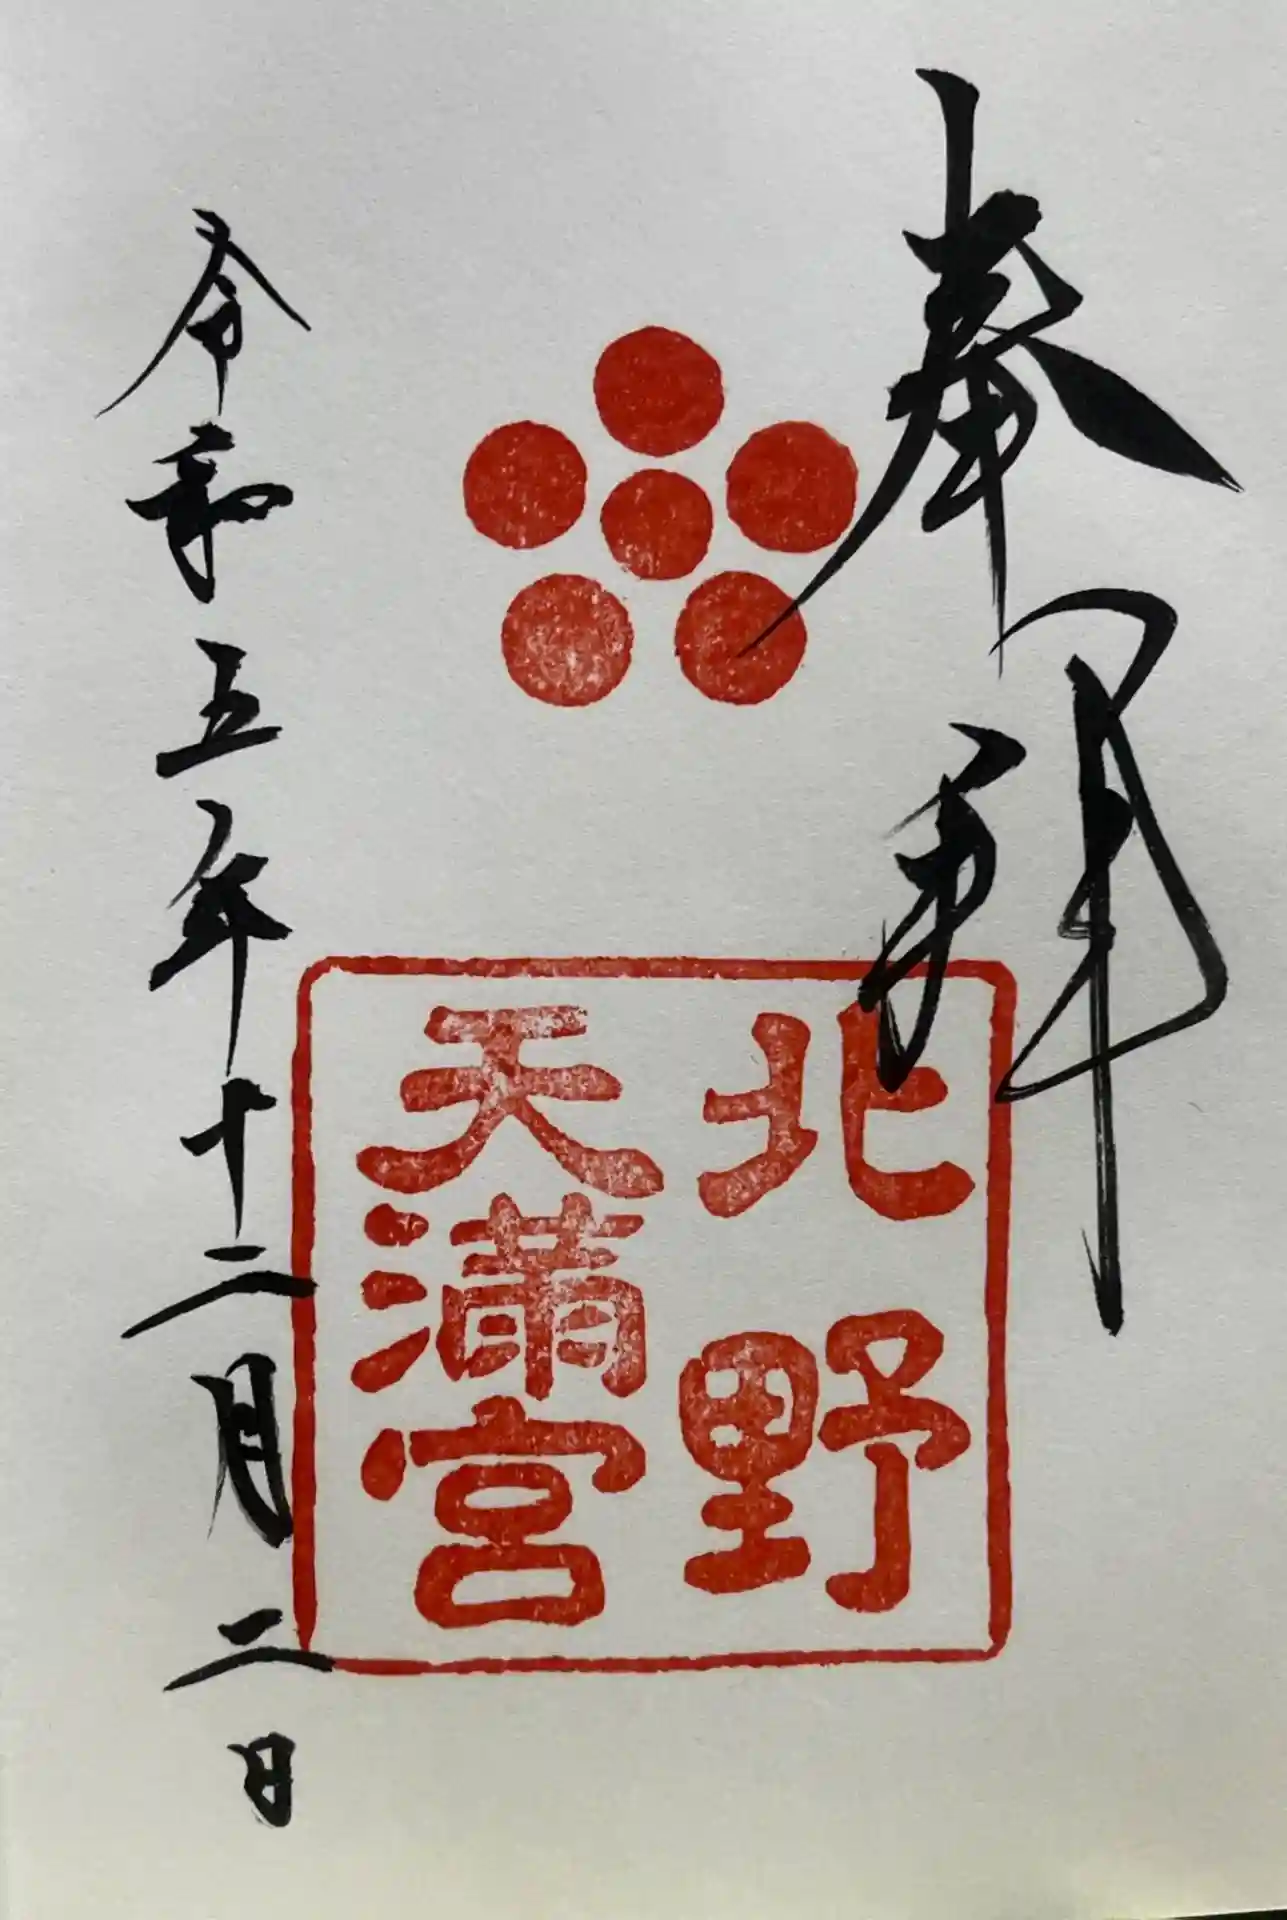 奉拜
北野
天満宮
令和五年十二月二日